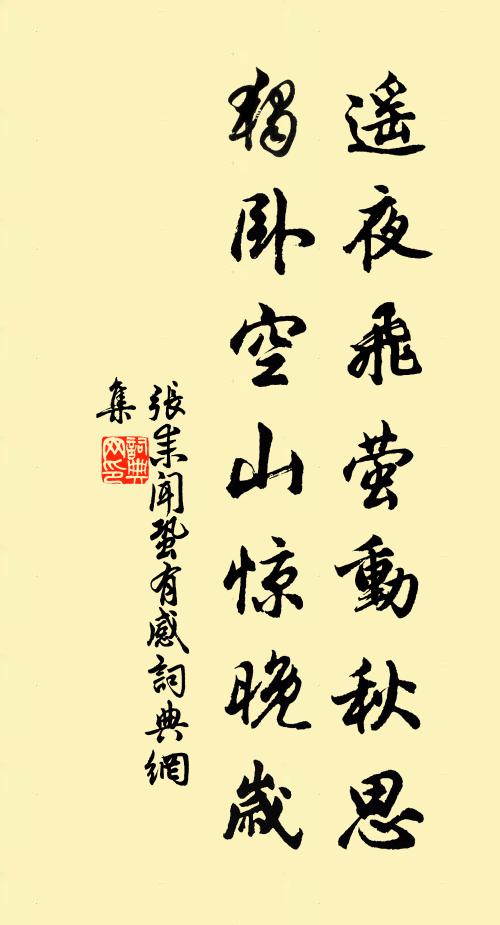 遥夜飛萤動秋思
獨卧空山惊晚歲
張耒聞蛩有感詞典網
集
詞典网印